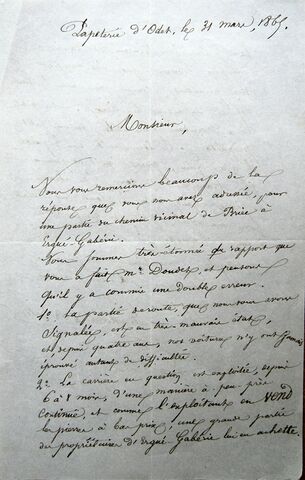 Papeterie d'Odet, le 31 mars, 1865.
Monsieur,
Nous vous remercions beaucoup de la
réponse que vous nous avez adressée, pour
une partie du chemin vicinal de Briec à
Ergué-Gabéric.
Nous sommes très étonnés du rapport que
vous a fait Mr Doudet, et pensons
qu'il y a commis une double erreur.
1º La partie de route, que nous vous avons
signalée, est en très mauvais état,
et depuis quatre ans, nos voitures n'y ont jamais
éprouvé autant de difficultés.
2º La carrière en question est exploitée, depuis
6 à 8 mois, d'une manière à peu près
continue, et comme l'exploitant en vend
la pierre à bas prix, une grande partie
des propriétaires d'Ergué-Gabéric lui en achette.